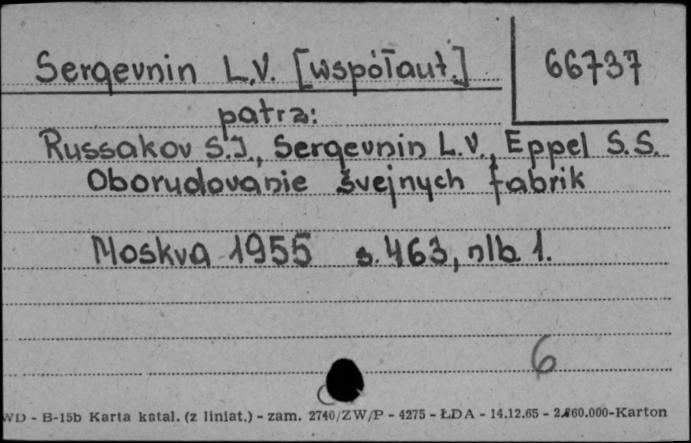 Sergevnin L.V. [współaut.] 66737
patrz:
Russakov S.I., Sergevnin L.V., Eppel S.S.
Oborudovanie švejnych fabrik
Moskva 1955 s. 463, nlb 1.
6
WD - B-15b Karta katal. (z liniat.) - zam. 2740/ZW/P - 4275 - ŁDA - 14.12.65 - 2.860.000-Karton